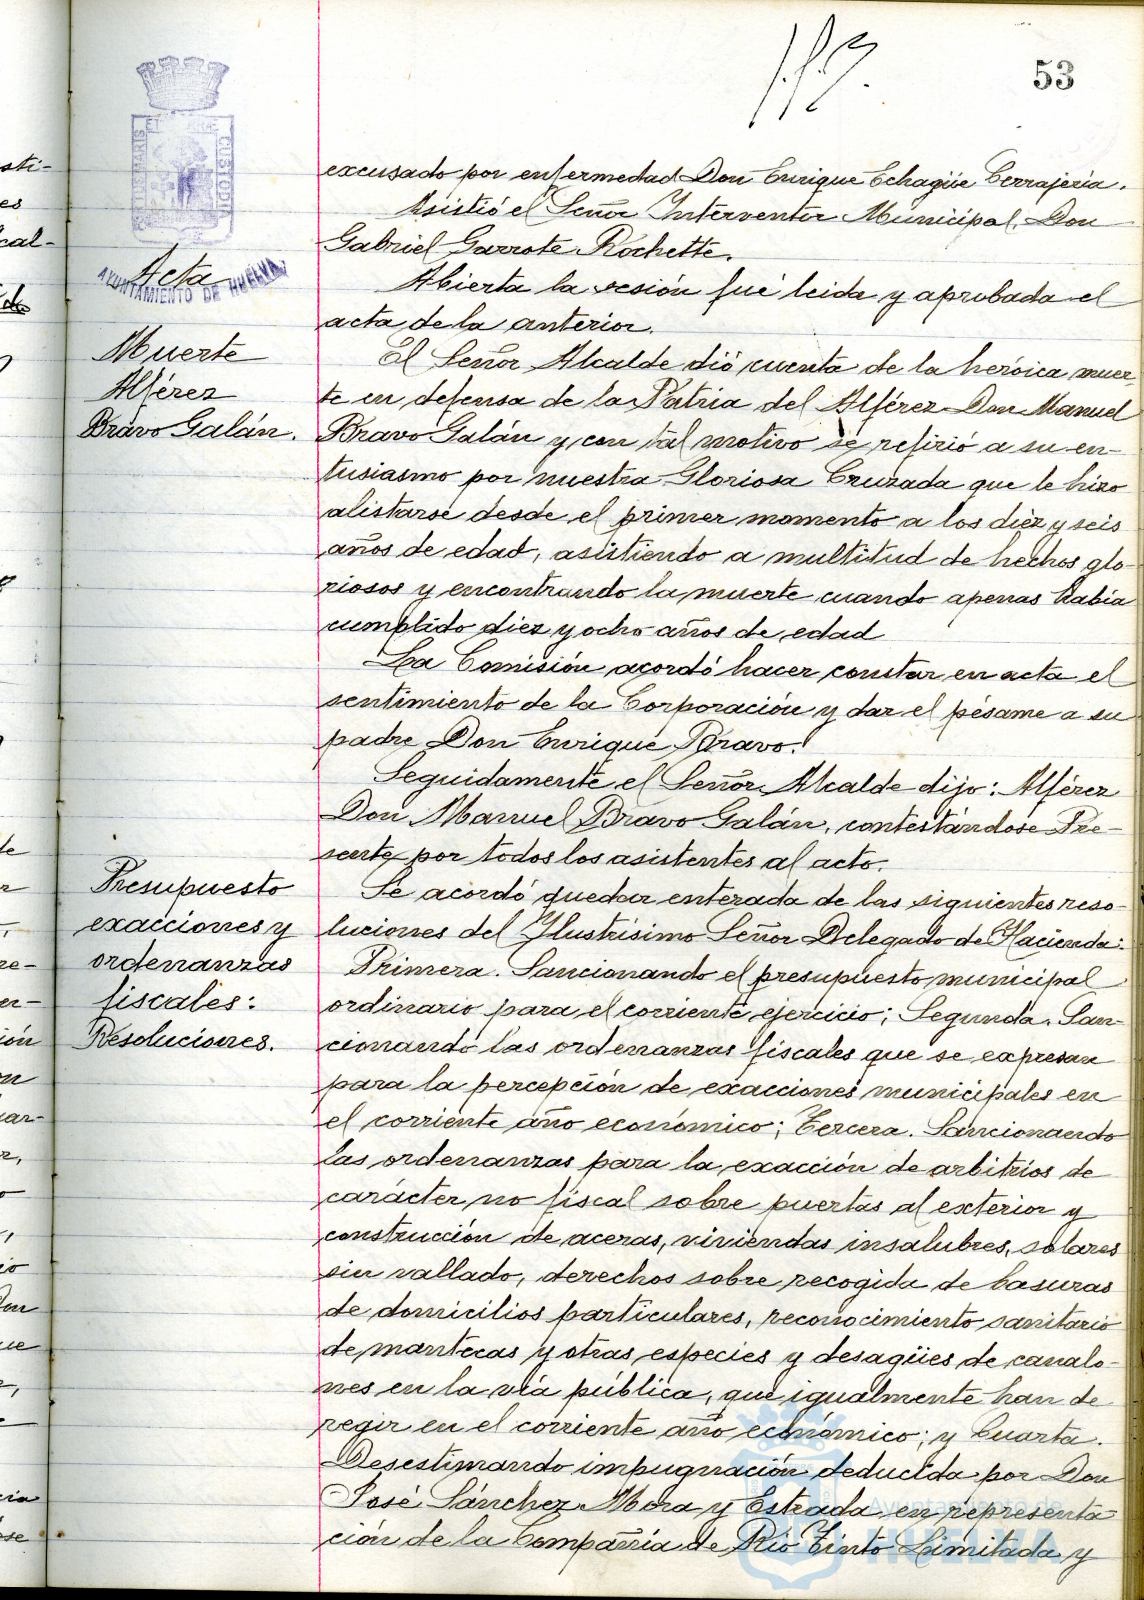 53
excusado por enfermedad Don Enrique Echagüe Cerrajería.
Asistió el Señor Interventor Municipal, Don
Gabriel Garrote Rochette.
Acta
AYUNTAMIENTO DE HUELVA
Abierta la sesión fué leida y aprobada el
acta de la anterior.
Muerte
Alférez
Bravo Galán.
El Señor Alcalde dió cuenta de la heróica muer
te en defensa de la Patria del Alférez Don Manuel
Bravo Galán y con tal motivo se refirió a su en-
tusiasmo por nuestra Gloriosa Cruzada que le hizo
alistarse desde el primer momento a los diez y seis
años de edad, asistiendo a multitud de hechos glo-
riosos y encontrando la muerte cuando apenas había
cumplido diez y ocho años de edad
La Comisión acordó hacer constar en acta el
sentimiento de la Corporación y dar el pésame a su
padre Don Enrique Bravo.
Seguidamente el Señor Alcalde dijo: Alférez
Don Manuel Bravo Galán, contestándose Pre-
sente por todos los asistentes al acto.
Presupuesto
exacciones y
ordenanzas
fiscales:
Resoluciones.
Se acordó quedar enterada de las siguientes reso-
luciones del Ylustrísimo Señor Delegado de Hacienda:
Primera. Sancionando el presupuesto municipal
ordinario para el corriente ejercicio; Segunda. San-
cionando las ordenanzas fiscales que se expresan
para la percepción de exacciones municipales en
el corriente año económico; Tercera. Sancionando
las ordenanzas para la exacción de arbitrios de
carácter no fiscal sobre puertas al exterior y
construcción de aceras, viviendas insalubres, solares
sin vallado, derechos sobre recogida de basuras
de domicilios particulares, reconocimiento sanitario
de mantecas y otras especies y desagües de canalo-
nes en la vía pública, que igualmente han de
regir en el corriente año económico; y Cuarta.
Desestimando impugnación deducida por Don
José Sánchez Mora y Estrada en representa
ción de la Compañía de Rio Tinto Limitada y
Ayuntamiento de
HUELVA